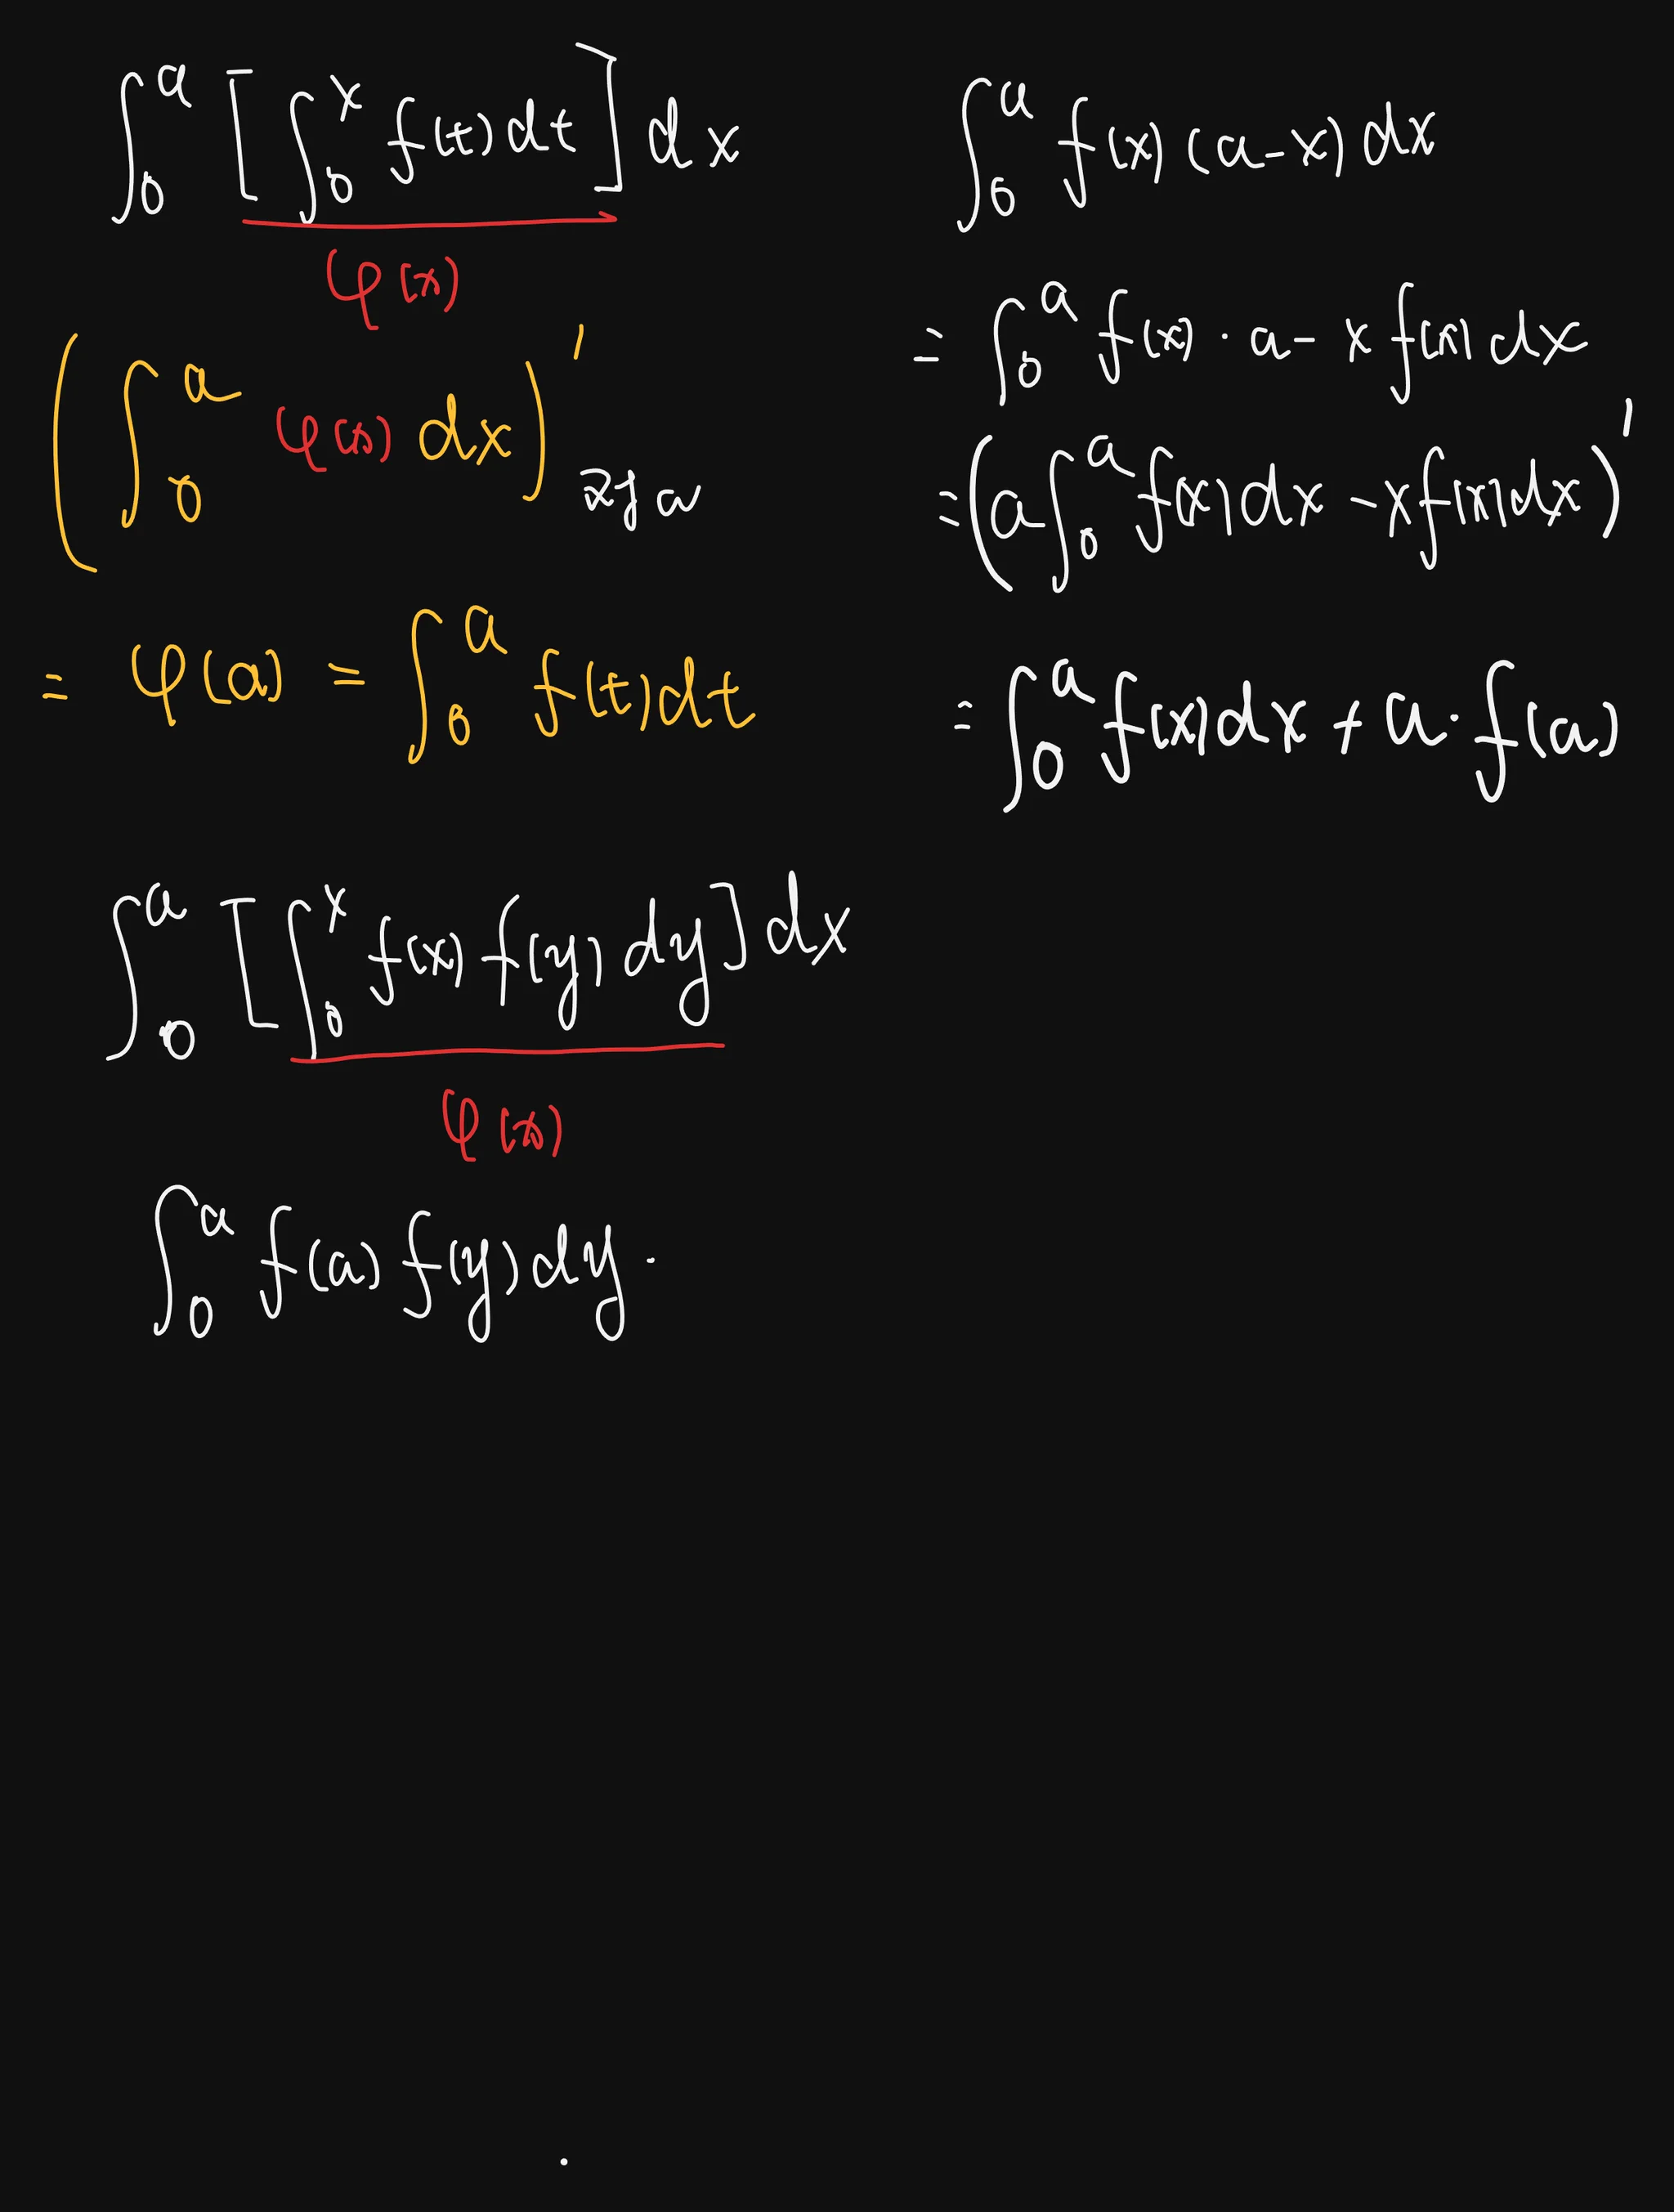 ∫₀ᵃ [∫₀ˣ f(t) dt] dx
φ(x)
(∫₀ᵃ φ(x) dx)′ 对a
= φ(a) = ∫₀ᵃ f(t) dt
∫₀ᵃ f(x)(a-x) dx
= ∫₀ᵃ f(x)·a - x f(x) dx
= (a∫₀ᵃ f(x)dx - x f(x)dx)′
= ∫₀ᵃ f(x)dx + a·f(a)
∫₀ᵃ [∫₀ˣ f(x) f(y) dy] dx
φ(x)
∫₀ᵃ f(a) f(y) dy ·